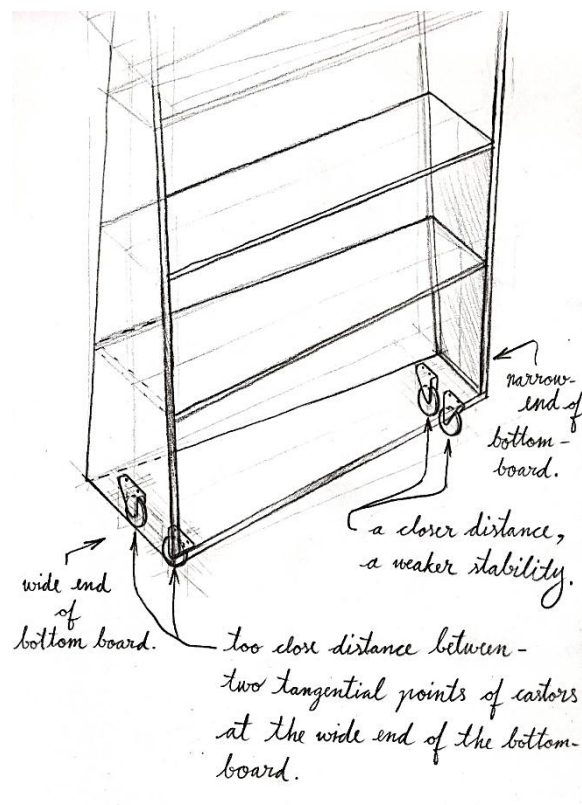 narrow-
end of
bottom-
board.
a closer distance,
a weaker stability.
wide end
of
bottom board.
too close distance between-
two tangential points of castors
at the wide end of the bottom-
board.